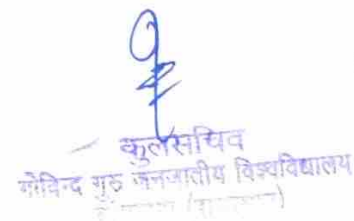 कुलसचिव
गोविन्द गुरु जनजातीय विश्वविद्यालय